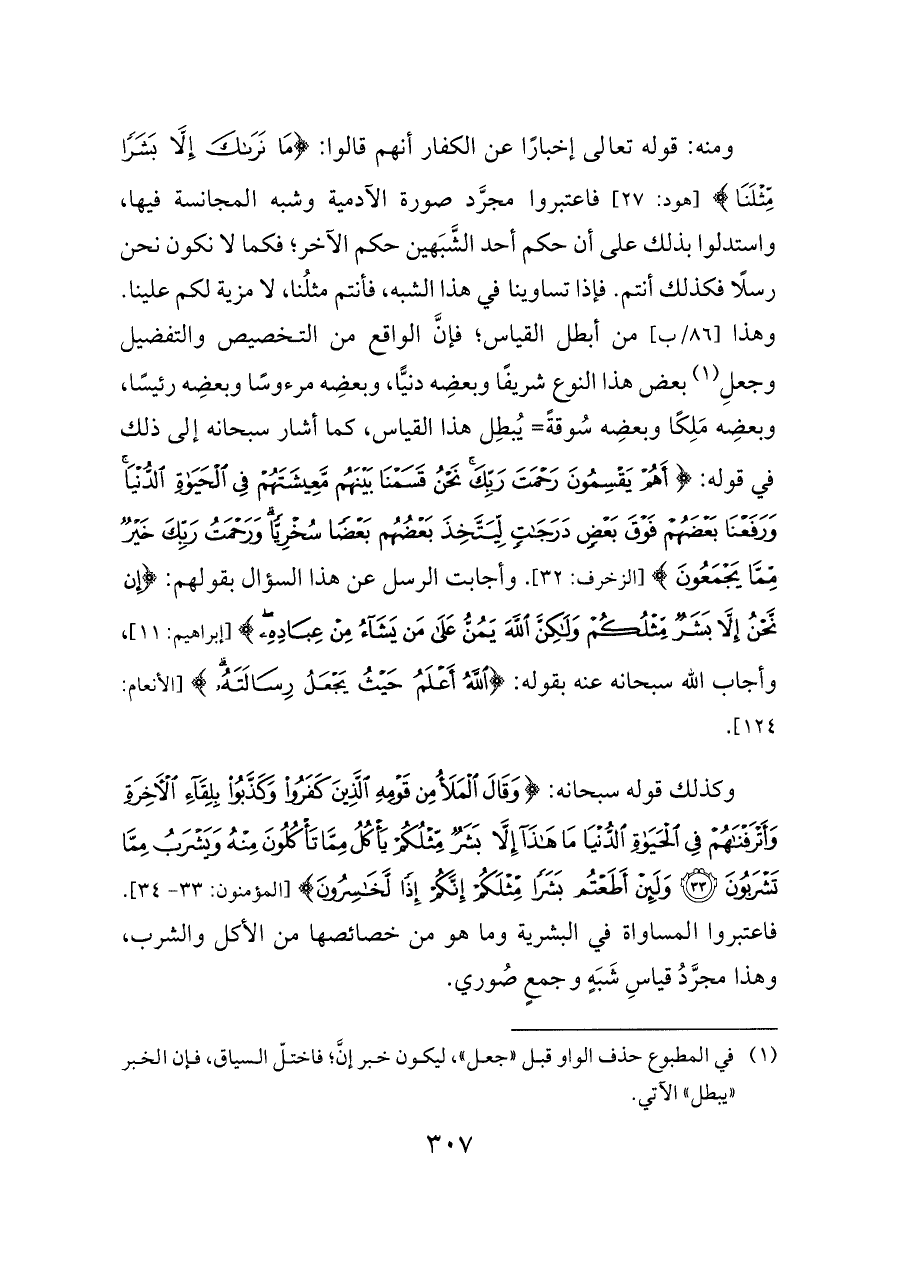 ومنه: قوله تعالى إخبارًا عن الكفار أنهم قالوا: ﴿مَا نَرَىٰكَ إِلَّا بَشَرًا
مِّثْلَنَا﴾ [هود: ٢٧] فاعتبروا مجرَّد صورة الآدمية وشبه المجانسة فيها،
واستدلوا بذلك على أن حكم أحد الشَّبَهين حكم الآخر؛ فكما لا نكون نحن
رسلًا فكذلك أنتم. فإذا تساوينا في هذا الشبه، فأنتم مثلُنا، لا مزية لكم علينا.
وهذا [٨٦/ب] من أبطل القياس؛ فإنَّ الواقع من التخصيص والتفضيل
وجعلِ(١) بعض هذا النوع شريفًا وبعضِه دنيًّا، وبعضِه مرءوسًا وبعضِه رئيسًا،
وبعضِه مَلِكًا وبعضِه سُوقةً= يُبطِل هذا القياس، كما أشار سبحانه إلى ذلك
في قوله: ﴿أَهُمْ يَقْسِمُونَ رَحْمَتَ رَبِّكَ ۚ نَحْنُ قَسَمْنَا بَيْنَهُم مَّعِيشَتَهُمْ فِي الْحَيَوٰةِ الدُّنْيَا ۚ
وَرَفَعْنَا بَعْضَهُمْ فَوْقَ بَعْضٍ دَرَجَٰتٍ لِّيَتَّخِذَ بَعْضُهُم بَعْضًا سُخْرِيًّا ۗ وَرَحْمَتُ رَبِّكَ خَيْرٌ
مِّمَّا يَجْمَعُونَ﴾ [الزخرف: ٣٢]. وأجابت الرسل عن هذا السؤال بقولهم: ﴿إِن
نَّحْنُ إِلَّا بَشَرٌ مِّثْلُكُمْ وَلَٰكِنَّ اللَّهَ يَمُنُّ عَلَىٰ مَن يَشَاءُ مِنْ عِبَادِهِ ۖ﴾ [إبراهيم: ١١]،
وأجاب الله سبحانه عنه بقوله: ﴿اللَّهُ أَعْلَمُ حَيْثُ يَجْعَلُ رِسَالَتَهُ ۗ﴾ [الأنعام:
١٢٤].
وكذلك قوله سبحانه: ﴿وَقَالَ الْمَلَأُ مِن قَوْمِهِ الَّذِينَ كَفَرُوا وَكَذَّبُوا بِلِقَاءِ الْآخِرَةِ
وَأَتْرَفْنَٰهُمْ فِي الْحَيَوٰةِ الدُّنْيَا مَا هَٰذَا إِلَّا بَشَرٌ مِّثْلُكُمْ يَأْكُلُ مِمَّا تَأْكُلُونَ مِنْهُ وَيَشْرَبُ مِمَّا
تَشْرَبُونَ ٣٣ وَلَئِنْ أَطَعْتُم بَشَرًا مِّثْلَكُمْ إِنَّكُمْ إِذًا لَّخَٰسِرُونَ﴾ [المؤمنون: ٣٣- ٣٤].
فاعتبروا المساواة في البشرية وما هو من خصائصها من الأكل والشرب،
وهذا مجرَّدُ قياسِ شَبَهٍ وجمعٍ صُوري.
(١) في المطبوع حذف الواو قبل «جعل»، ليكون خبر إنَّ؛ فاختلّ السياق، فإن الخبر
«يبطل» الآتي.
٣٠٧